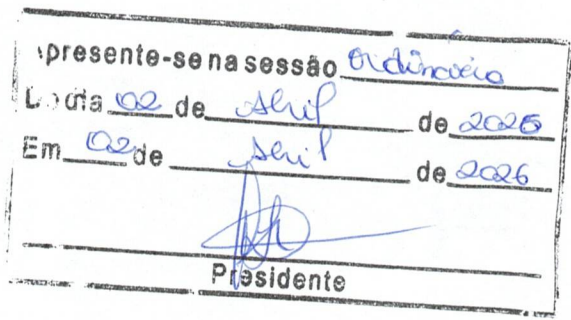 apresente-se na sessão Ordinária
Do dia 02 de Abril de 2026
Em 02 de Abril de 2026
Presidente